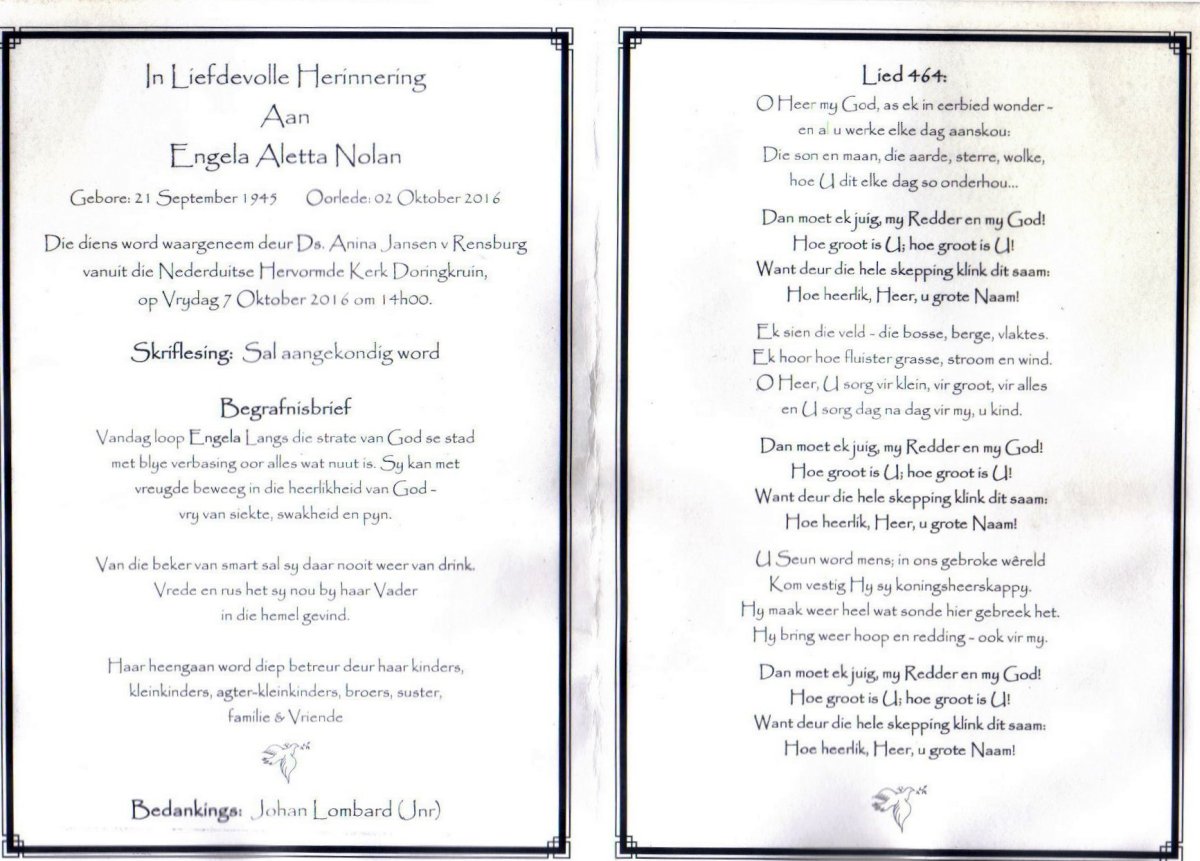 In Liefdevolle Herinnering
Aan
Engela Aletta Nolan
Gebore: 21 September 1945 Oorlede: 02 Oktober 2016
Die diens word waargeneem deur Ds. Anina Jansen v Rensburg
vanuit die Nederduitse Hervormde Kerk Doringkruin,
op Vrydag 7 Oktober 2016 om 14h00.
Skriflesing: Sal aangekondig word
Begrafnisbrief
Vandag loop Engela Langs die strate van God se stad
met blye verbasing oor alles wat nuut is. Sy kan met
vreugde beweeg in die heerlikheid van God -
vry van siekte, swakheid en pyn.
Van die beker van smart sal sy daar nooit weer van drink.
Vrede en rus het sy nou by haar Vader
in die hemel gevind.
Haar heengaan word diep betreur deur haar kinders,
kleinkinders, agter-kleinkinders, broers, suster,
familie & Vriende
Bedankings: Johan Lombard (Unr)
Lied 464:
O Heer my God, as ek in eerbied wonder -
en al u werke elke dag aanskou:
Die son en maan, die aarde, sterre, wolke,
hoe U dit elke dag so onderhou...
Dan moet ek juig, my Redder en my God!
Hoe groot is U; hoe groot is U!
Want deur die hele skepping klink dit saam:
Hoe heerlik, Heer, u grote Naam!
Ek sien die veld - die bosse, berge, vlaktes.
Ek hoor hoe fluister grasse, stroom en wind.
O Heer, U sorg vir klein, vir groot, vir alles
en U sorg dag na dag vir my, u kind.
Dan moet ek juig, my Redder en my God!
Hoe groot is U; hoe groot is U!
Want deur die hele skepping klink dit saam:
Hoe heerlik, Heer, u grote Naam!
U Seun word mens; in ons gebroke wêreld
Kom vestig Hy sy koningsheerskappy.
Hy maak weer heel wat sonde hier gebreek het.
Hy bring weer hoop en redding - ook vir my.
Dan moet ek juig, my Redder en my God!
Hoe groot is U; hoe groot is U!
Want deur die hele skepping klink dit saam:
Hoe heerlik, Heer, u grote Naam!